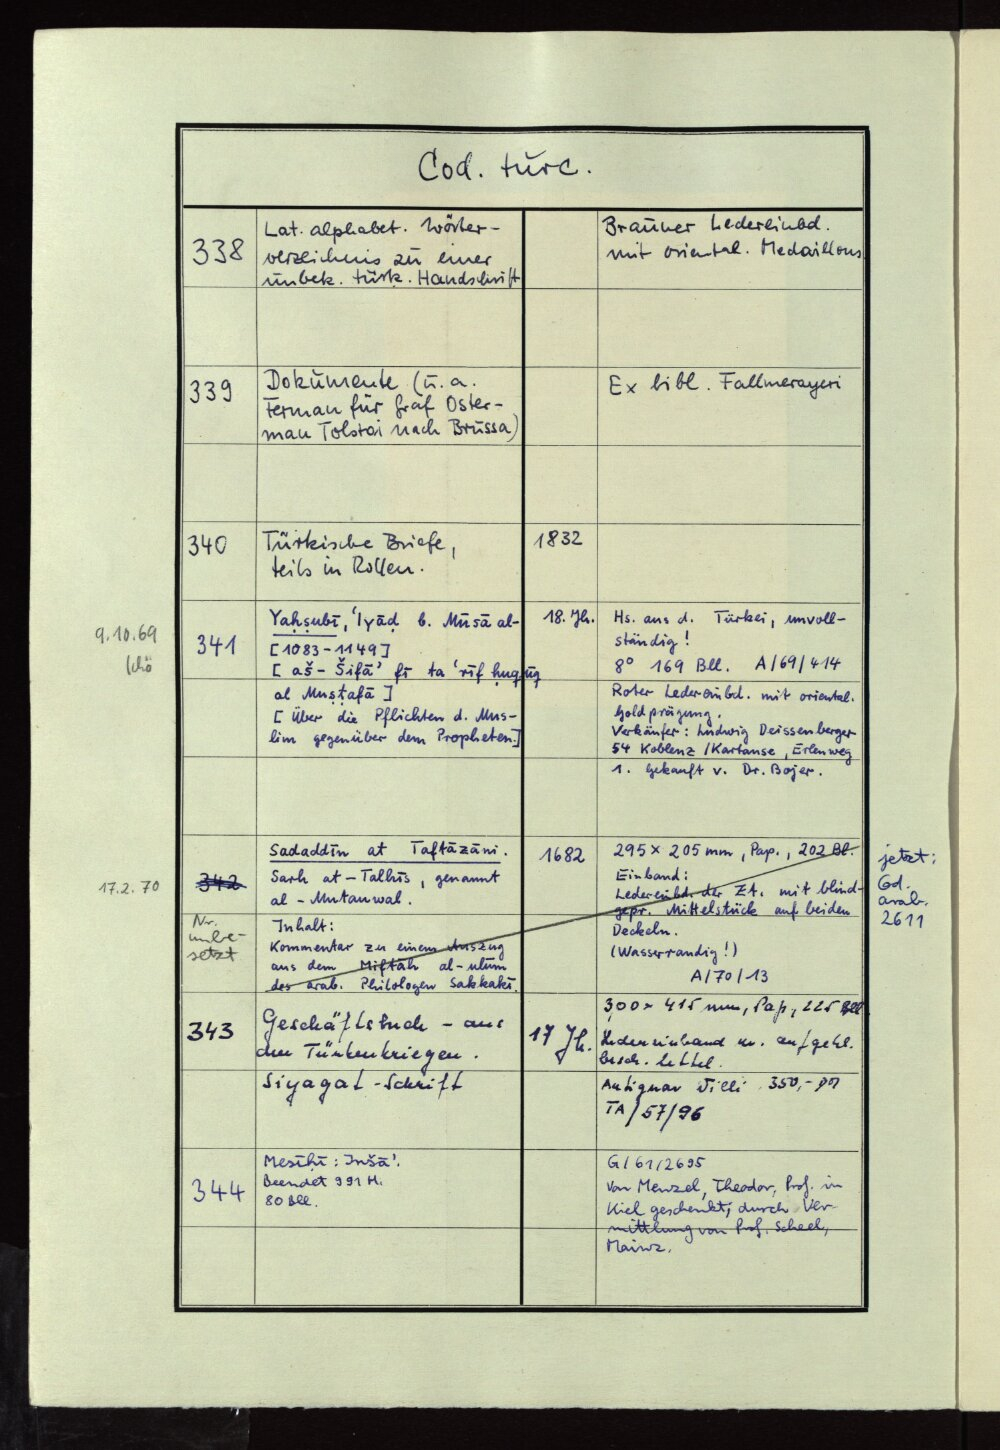 Cod. turc.
338
Lat. alphabet. Wörter-
verzeichnis zu einer
unbek. türk. Handschrift
Brauner Ledereinbd.
mit oriental. Medaillons
339
Dokumente (u. a.
Ferman für Graf Oster-
man Tolstoi nach Brussa)
Ex bibl. Fallmerayeri
340
Türkische Briefe,
teils in Rollen.
1832
9.10.69
341
Yaḥṣubī, ʿIyāḍ b. Mūsā al-
[1083-1149]
[aš-Šifāʾ fī taʿrīf ḥuqūq
al Muṣṭafā]
[Über die Pflichten d. Mus-
lim gegenüber dem Propheten.]
18. Jh.
Hs. aus d. Türkei, unvoll-
ständig!
8° 169 Bll. A/69/414
Roter Ledereinbd. mit oriental.
Goldprägung.
Verkäufer: Ludwig Deissenberger
54 Koblenz/Kartause, Erlenweg
1. Gekauft v. Dr. Bojer.
17.2.70
342
Nr.
unbe-
setzt
Sadaddīn at Taftāzāni.
Sarh at-Talhīs, genannt
al-Mutauwal.
Inhalt:
Kommentar zu einem Auszug
aus dem Miftāh al-ulūm
des arab. Philologen Sakkaki.
1682
295 x 205 mm, Pap., 202 Bl.
Einband:
Ledereinbd. der Zt. mit blind-
gepr. Mittelstück auf beiden
Deckeln.
(Wasserrandig!)
A/70/13
jetzt:
Cod.
arab.
2611
343
Geschäftsbuch - aus
den Türkenkriegen.
Siyagat-Schrift
17 Jh.
300 x 415 mm, Pap, 225 Bll
Ledereinband m. aufgekl.
besch. Zettel.
Antiquar Willi 350,- DM
TA/57/96
344
Mesīḥī: Inšāʾ.
Beendet 991 H.
80 Bll.
G/61/2695
Von Menzel, Theodor, Prof. in
Kiel geschenkt; durch Ver-
mittlung von Prof. Scheel,
Mainz.